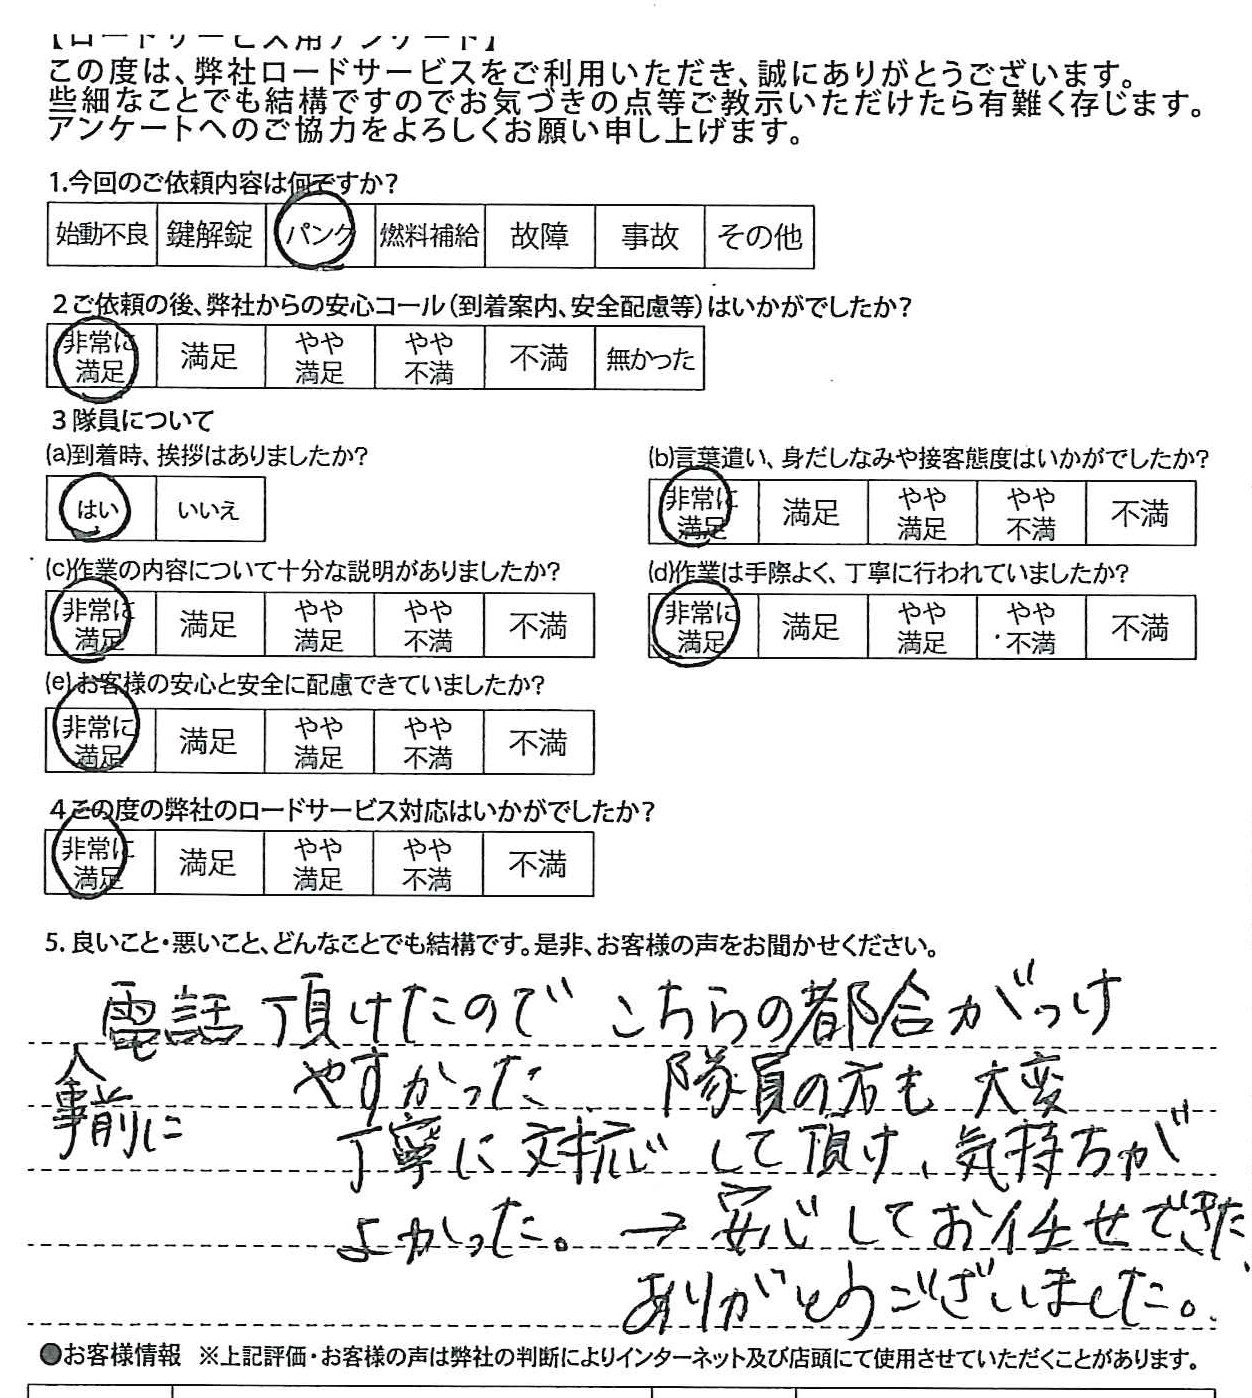 【ロードサービス用アンケート】
この度は、弊社ロードサービスをご利用いただき、誠にありがとうございます。
些細なことでも結構ですのでお気づきの点等ご教示いただけたら有難く存じます。
アンケートへのご協力をよろしくお願い申し上げます。
1.今回のご依頼内容は何ですか?
始動不良 鍵解錠 パンク 燃料補給 故障 事故 その他
2ご依頼の後、弊社からの安心コール(到着案内、安全配慮等)はいかがでしたか?
非常に満足 満足 やや満足 やや不満 不満 無かった
3隊員について
(a)到着時、挨拶はありましたか?
はい いいえ
(b)言葉遣い、身だしなみや接客態度はいかがでしたか?
非常に満足 満足 やや満足 やや不満 不満
(c)作業の内容について十分な説明がありましたか?
非常に満足 満足 やや満足 やや不満 不満
(d)作業は手際よく、丁寧に行われていましたか?
非常に満足 満足 やや満足 やや不満 不満
(e)お客様の安心と安全に配慮できていましたか?
非常に満足 満足 やや満足 やや不満 不満
4この度の弊社のロードサービス対応はいかがでしたか?
非常に満足 満足 やや満足 やや不満 不満
5. 良いこと・悪いこと、どんなことでも結構です。是非、お客様の声をお聞かせください。
電話頂けたので こちらの都合がつけ
事前に
やすかった 隊員の方も 大変
丁寧に対応して頂け、気持ちが
よかった。→安心してお任せできた、
ありがとうございました。
●お客様情報 ※上記評価・お客様の声は弊社の判断によりインターネット及び店頭にて使用させていただくことがあります。